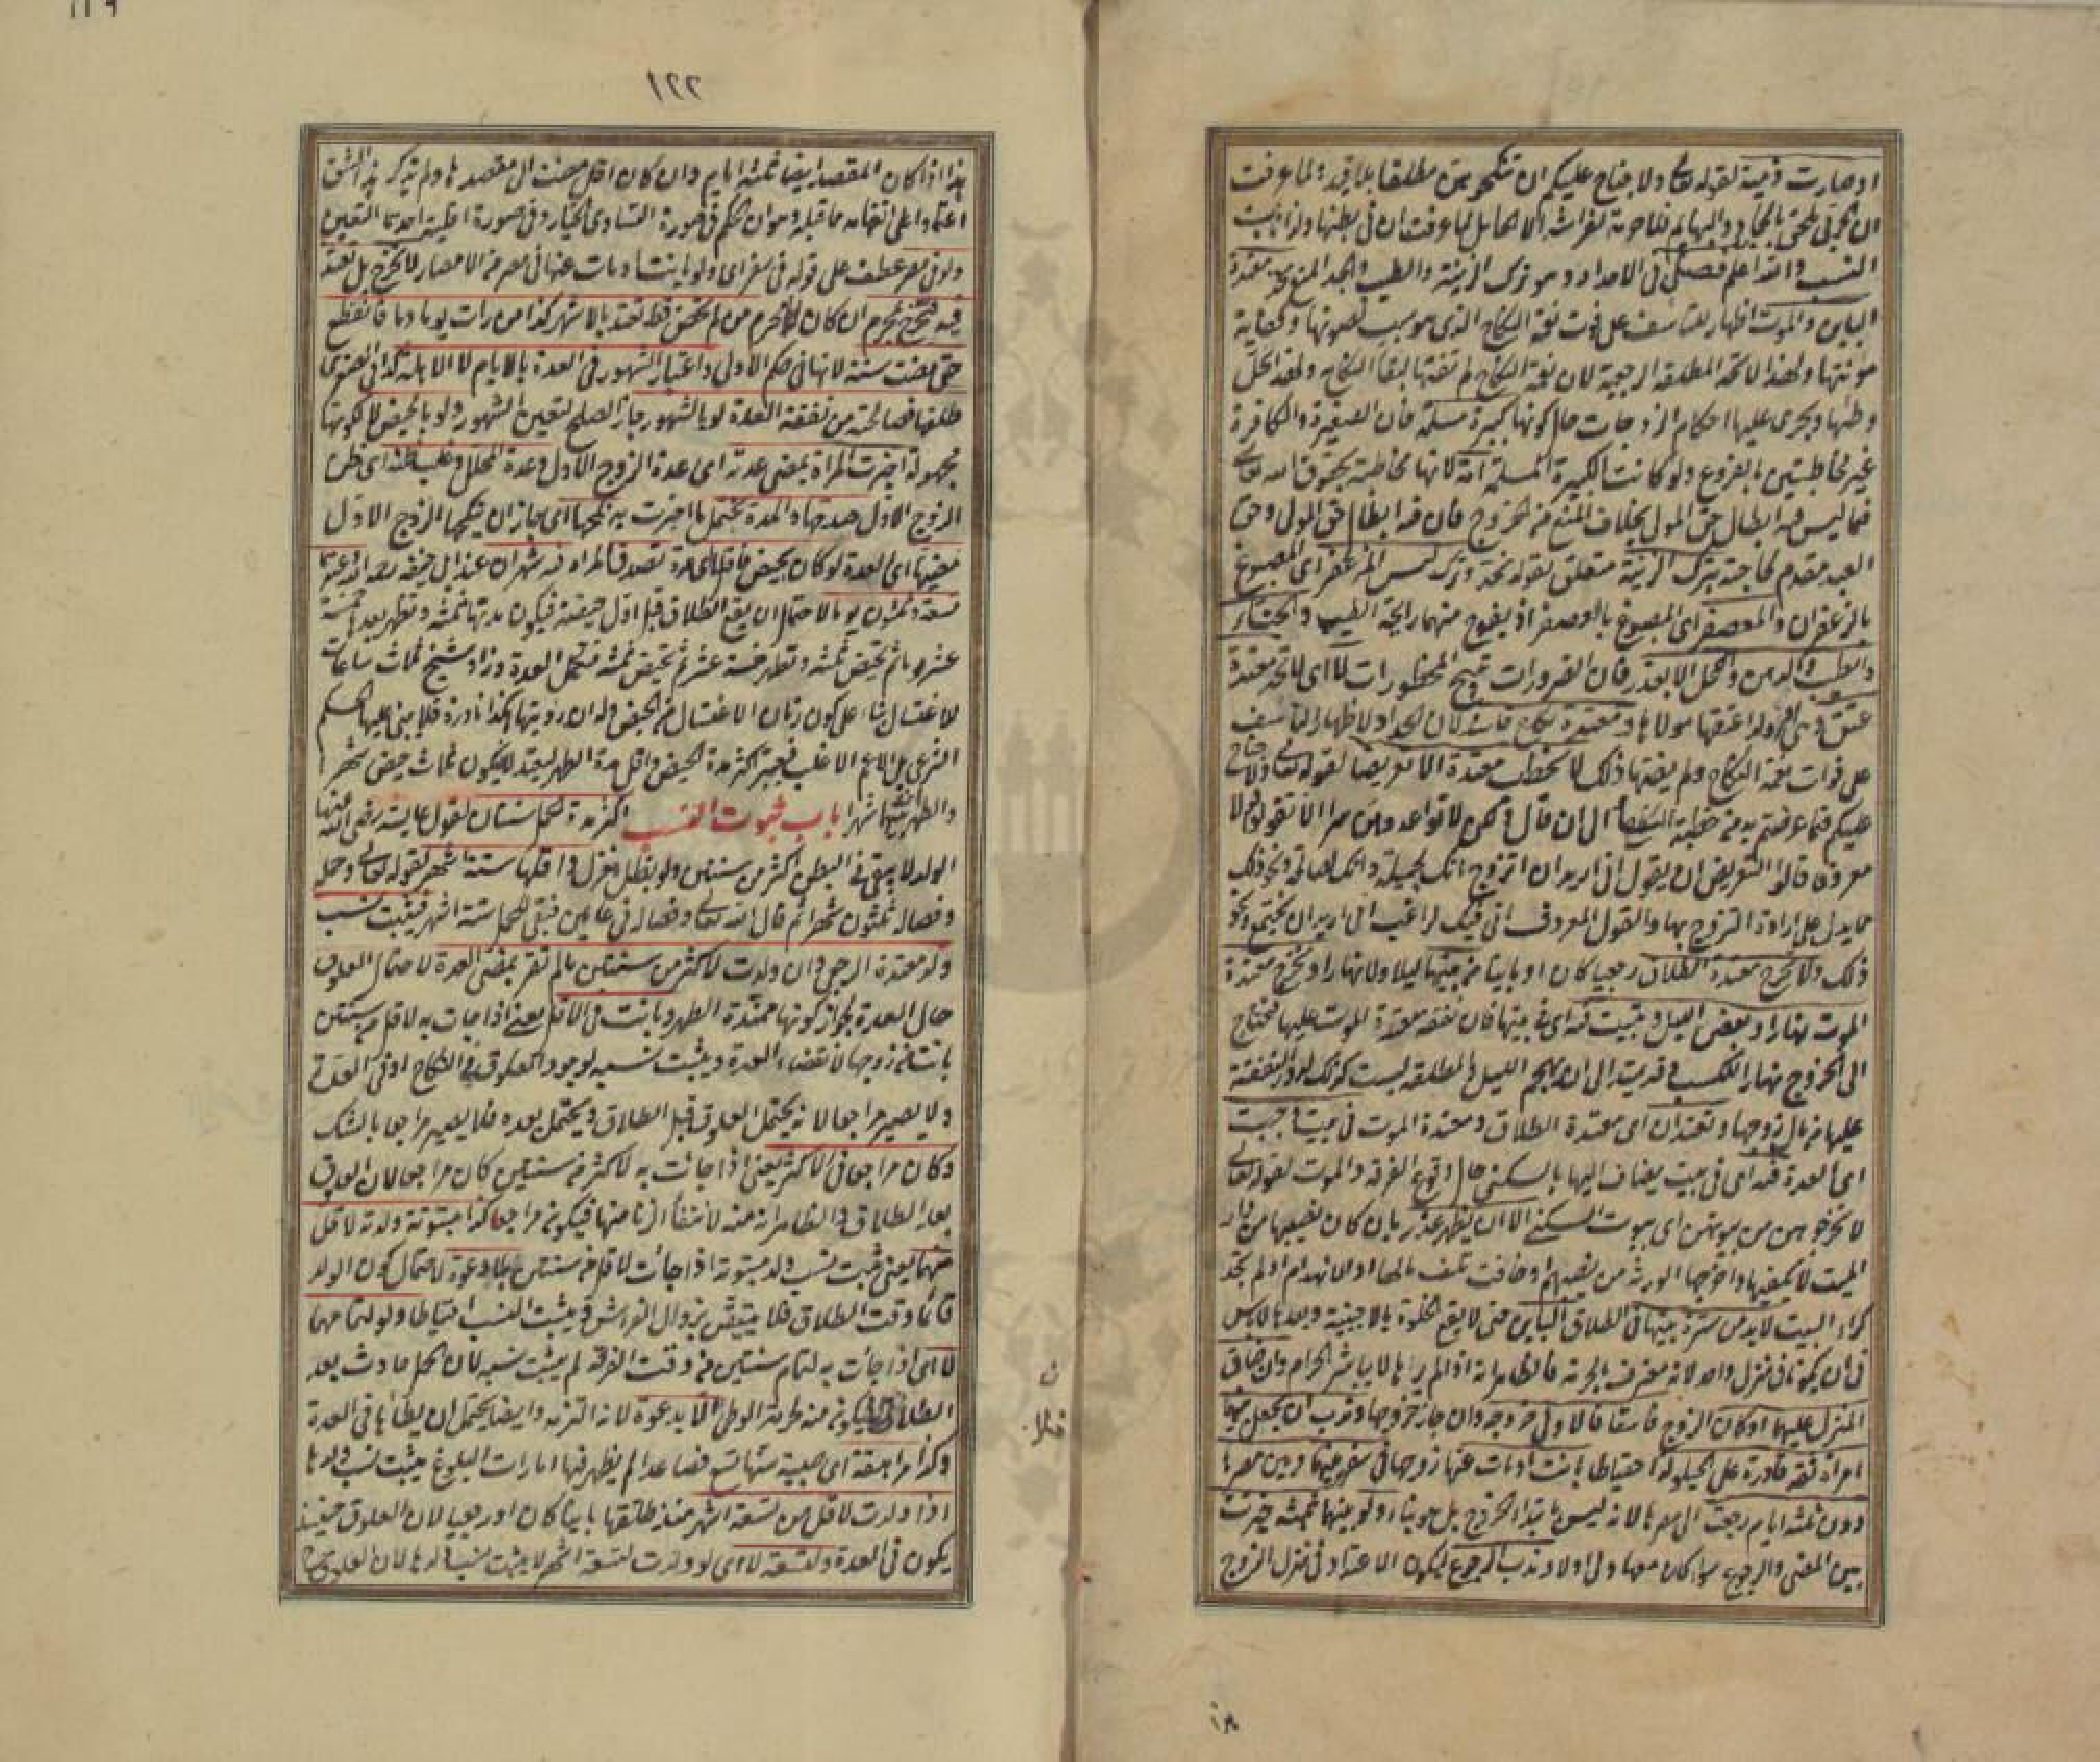 او صارت ذمية لقوله تعالى ولا جناح عليكم ان تنكحوهن مطلقا بلا قيد لما عرفت
ان الحربي ملحق بالجماد والبهائم فلا حرمة لفراشه الا الحامل لما عرفت ان في بطنها ولدا ثابت
النسب والله اعلم فصل في الاحداد وهو ترك الزينة والطيب والحد المنع تحد معتدة
البائن والموت اظهارا للتأسف على فوت نعمة النكاح الذي هو سبب لصونها وكفاية
مؤنتها ولهذا لا تحد المطلقة الرجعية لان نعمة النكاح لم تفتها لبقاء النكاح ولهذا يحل
وطئها ويجري عليها احكام الزوجات حال كونها كبيرة مسلمة فان الصغيرة والكافرة
غير مخاطبتين بالفروع ولو كانت الكبيرة المسلمة امة لانها مخاطبة بحقوق الله تعالى
فيما ليس فيه ابطال حق المولى بخلاف المنع من الخروج فان فيه ابطال حق المولى وحق
العبد مقدم لحاجته بترك الزينة متعلق بقوله تحد وترك لبس المزعفر اي المصبوغ
بالزعفران والمعصفر اي المصبوغ بالعصفر اذ يفوح منهما رايحة الطيب والحناء
والطيب والدهن والكحل الا بعذر فان الضرورات تبيح المحظورات لا اي لا تحد معتدة
عتق وهي ام ولد اعتقها مولاها ومعتدة نكاح فاسد لان الحداد لاظهار التاسف
على فوات نعمة النكاح ولم يفتها ذلك لا تخطب معتدة الا تعريضا لقوله تعالى ولا جناح
عليكم فيما عرضتم به من خطبة النساء الى ان قال ولكن لا تواعدوهن سرا الا ان تقولوا قولا
معروفا قالوا التعريض ان يقول اني اريد ان اتزوج انك لجميلة وانك لصالحة ونحو ذلك
مما يدل على ارادة التزوج بها والقول المعروف اني فيك لراغب اني اريد ان نجتمع ونحو
ذلك ولا تخرج معتدة الطلاق رجعيا كان او باينا من بيتها ليلا ولا نهارا وتخرج معتدة
الموت نهارا وبعض الليل وتبيت فيه اي في بيتها فان نفقة معتدة الموت عليها فتحتاج
الى الخروج نهارا للكسب وقد يمتد الى ان يهجم الليل والمطلقة ليست كذلك لدرور النفقة
عليها من مال زوجها وتعتدان اي معتدة الطلاق ومعتدة الموت في بيت وجبت
اي العدة فيه اي في بيت يضاف اليها بالسكنى حال وقوع الفرقة والموت لقوله تعالى
لا تخرجوهن من بيوتهن اي بيوت السكنى الا ان يظهر عذر بان كان نصيبها من دار
الميت لا يكفيها واخرجها الورثة من نصيبهم او خافت تلف مالها او الانهدام او لم تجد
كراء البيت لا بد من سترة بينهما في الطلاق البائن حتى لا يقع الخلوة بالاجنبية وبعدها لا باس
في ان يكونا في منزل واحد لانه معترف بالحرمة فالظاهر انه اذا لم يرها لا يباشر الحرام وان ضاق
المنزل عليهما او كان الزوج فاسقا فالاولى خروجه وان جاز خروجها وندب ان يجعل بينهما
امرأة ثقة قادرة على الحيلولة احتياطا بانت او مات عنها زوجها في سفر بينها وبين مصرها
دون ثلثة ايام رجعت الى مصرها لانه ليس بابتداء الخروج بل هو بناء ولو بينهما ثلثة خيرت
بين المضي والرجوع سواء كان معها ولي او لا وندب الرجوع ليكون الاعتداد في منزل الزوج
١٢٢
هذا اذا كان المقصد ايضا ثلثة ايام وان كان اقل مضت الى مقصدها ولم يذكر هذا الشق
اعتمادا على انفهامه مما قبله وهو ان الحكم في صورة التساوي الخيار وفي صورة اقلية احدهما التعين
ولو في مصر عطف على قوله في سفر اي ولو ابانتها او مات عنها في مصر من الامصار لا تخرج بل تعتد
فيه فتخرج بمحرم ان كان لها محرم من لم تحض قط تعتد بالاشهر كذا من رات يوما دما فانقطع
حتى مضت سنة لانها في حكم الاولى واعتبار الشهور في العدة بالايام لا الاهلة كذا في الصغرى
طلقها فصالحته من نفقة العدة لو بالشهور جاز الصلح لتعين الشهور ولو بالحيض لا لكونها
مجهولة اخبرت المرأة بمضي عدته اي عدة الزوج الاول وعدة المحلل وغلب ظنه اي ظن
الزوج الاول صدقها والمدة تحتمل ما اخبرت به نكحها اي جاز ان ينكحها الزوج الاول
مضيها اي العدة لو كان بحيض فاقل مدة تصدق المراة فيه شهران عند ابي حنيفة وعندهما
تسعة وثلثون يوما لاحتمال ان يقع الطلاق قبل اول حيضة فيكون مدتها ثلثة وتطهر بعدها خمسة
عشر يوما ثم تحيض ثلثة وتطهر خمسة عشر ثم تحيض ثلثة فتكمل العدة وزاد شيخ ثلاث ساعات
للاغتسال بناء على كون زمان الاغتسال من الحيض وله ان رؤيتها هكذا نادرة فلا يبنى عليها الحكم
الشرعي بل الاعم الاغلب فيعتبر اكثر مدة الحيض واقل مدة الطهر ليعتدلا فيكون ثلاث حيض شهرا
والطهر بينهما شهرا باب ثبوت النسب اكثر مدة الحمل سنتان لقول عايشة رضي الله عنها
الولد لا يبقى في البطن اكثر من سنتين ولو بظل مغزل واقلها ستة اشهر لقوله تعالى وحمله
وفصاله ثلثون شهرا ثم قال الله تعالى وفصاله في عامين فبقي للحمل ستة اشهر فيثبت نسب
ولد معتدة الرجعي وان ولدت لاكثر من سنتين ما لم تقر بمضي العدة لاحتمال العلوق
حال العدة لجواز كونها ممتدة الطهر وبانت في الاقل يعني اذا جاءت به لاقل من سنتين
بانت من زوجها لانقضاء العدة ويثبت نسبه لوجود العلوق في النكاح او في العدة
ولا يصير مراجعا لانه يحتمل العلوق قبل الطلاق ويحتمل بعده فلا يصير مراجعا بالشك
وكان مراجعا في الاكثر يعني اذا جاءت به لاكثر من سنتين كان مراجعا لان العلوق
بعد الطلاق والظاهر انه منه لانتفاء الزنا منها فيكون مراجعا كذا مبتوتة ولدته لاقل
منهما يعني يثبت نسب ولد مبتوتة اذا جاءت لاقل من سنتين بلا دعوة لاحتمال كون الولد
قائما وقت الطلاق فلا يتيقن بزوال الفراش ويثبت النسب احتياطا ولو لتمامهما
لا اي اذا جاءت به لتمام سنتين من وقت الفرقة لم يثبت نسبه لان الحمل حادث بعد
الطلاق فلا يكون منه لحرمة الوطئ الا بدعوة لانه التزمه وايضا يحتمل ان يطأها في العدة
وكذا مراهقة اي صبية سنها تسع فصاعدا لم يظهر فيها امارات البلوغ يثبت نسب ولدها
اذا ولدت لاقل من تسعة اشهر منذ طلقها باينا كان او رجعيا لان العلوق حينئذ
يكون في العدة ولتسعة لا اي لو ولدت لتسعة اشهر لا يثبت نسب ولدها لان العلوق